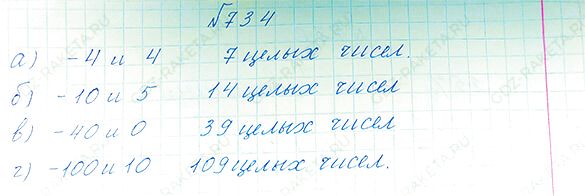 №734
а) -4 и 4 7 целых чисел.
б) -10 и 5 14 целых чисел
в) -40 и 0 39 целых чисел
г) -100 и 10 109 целых чисел.